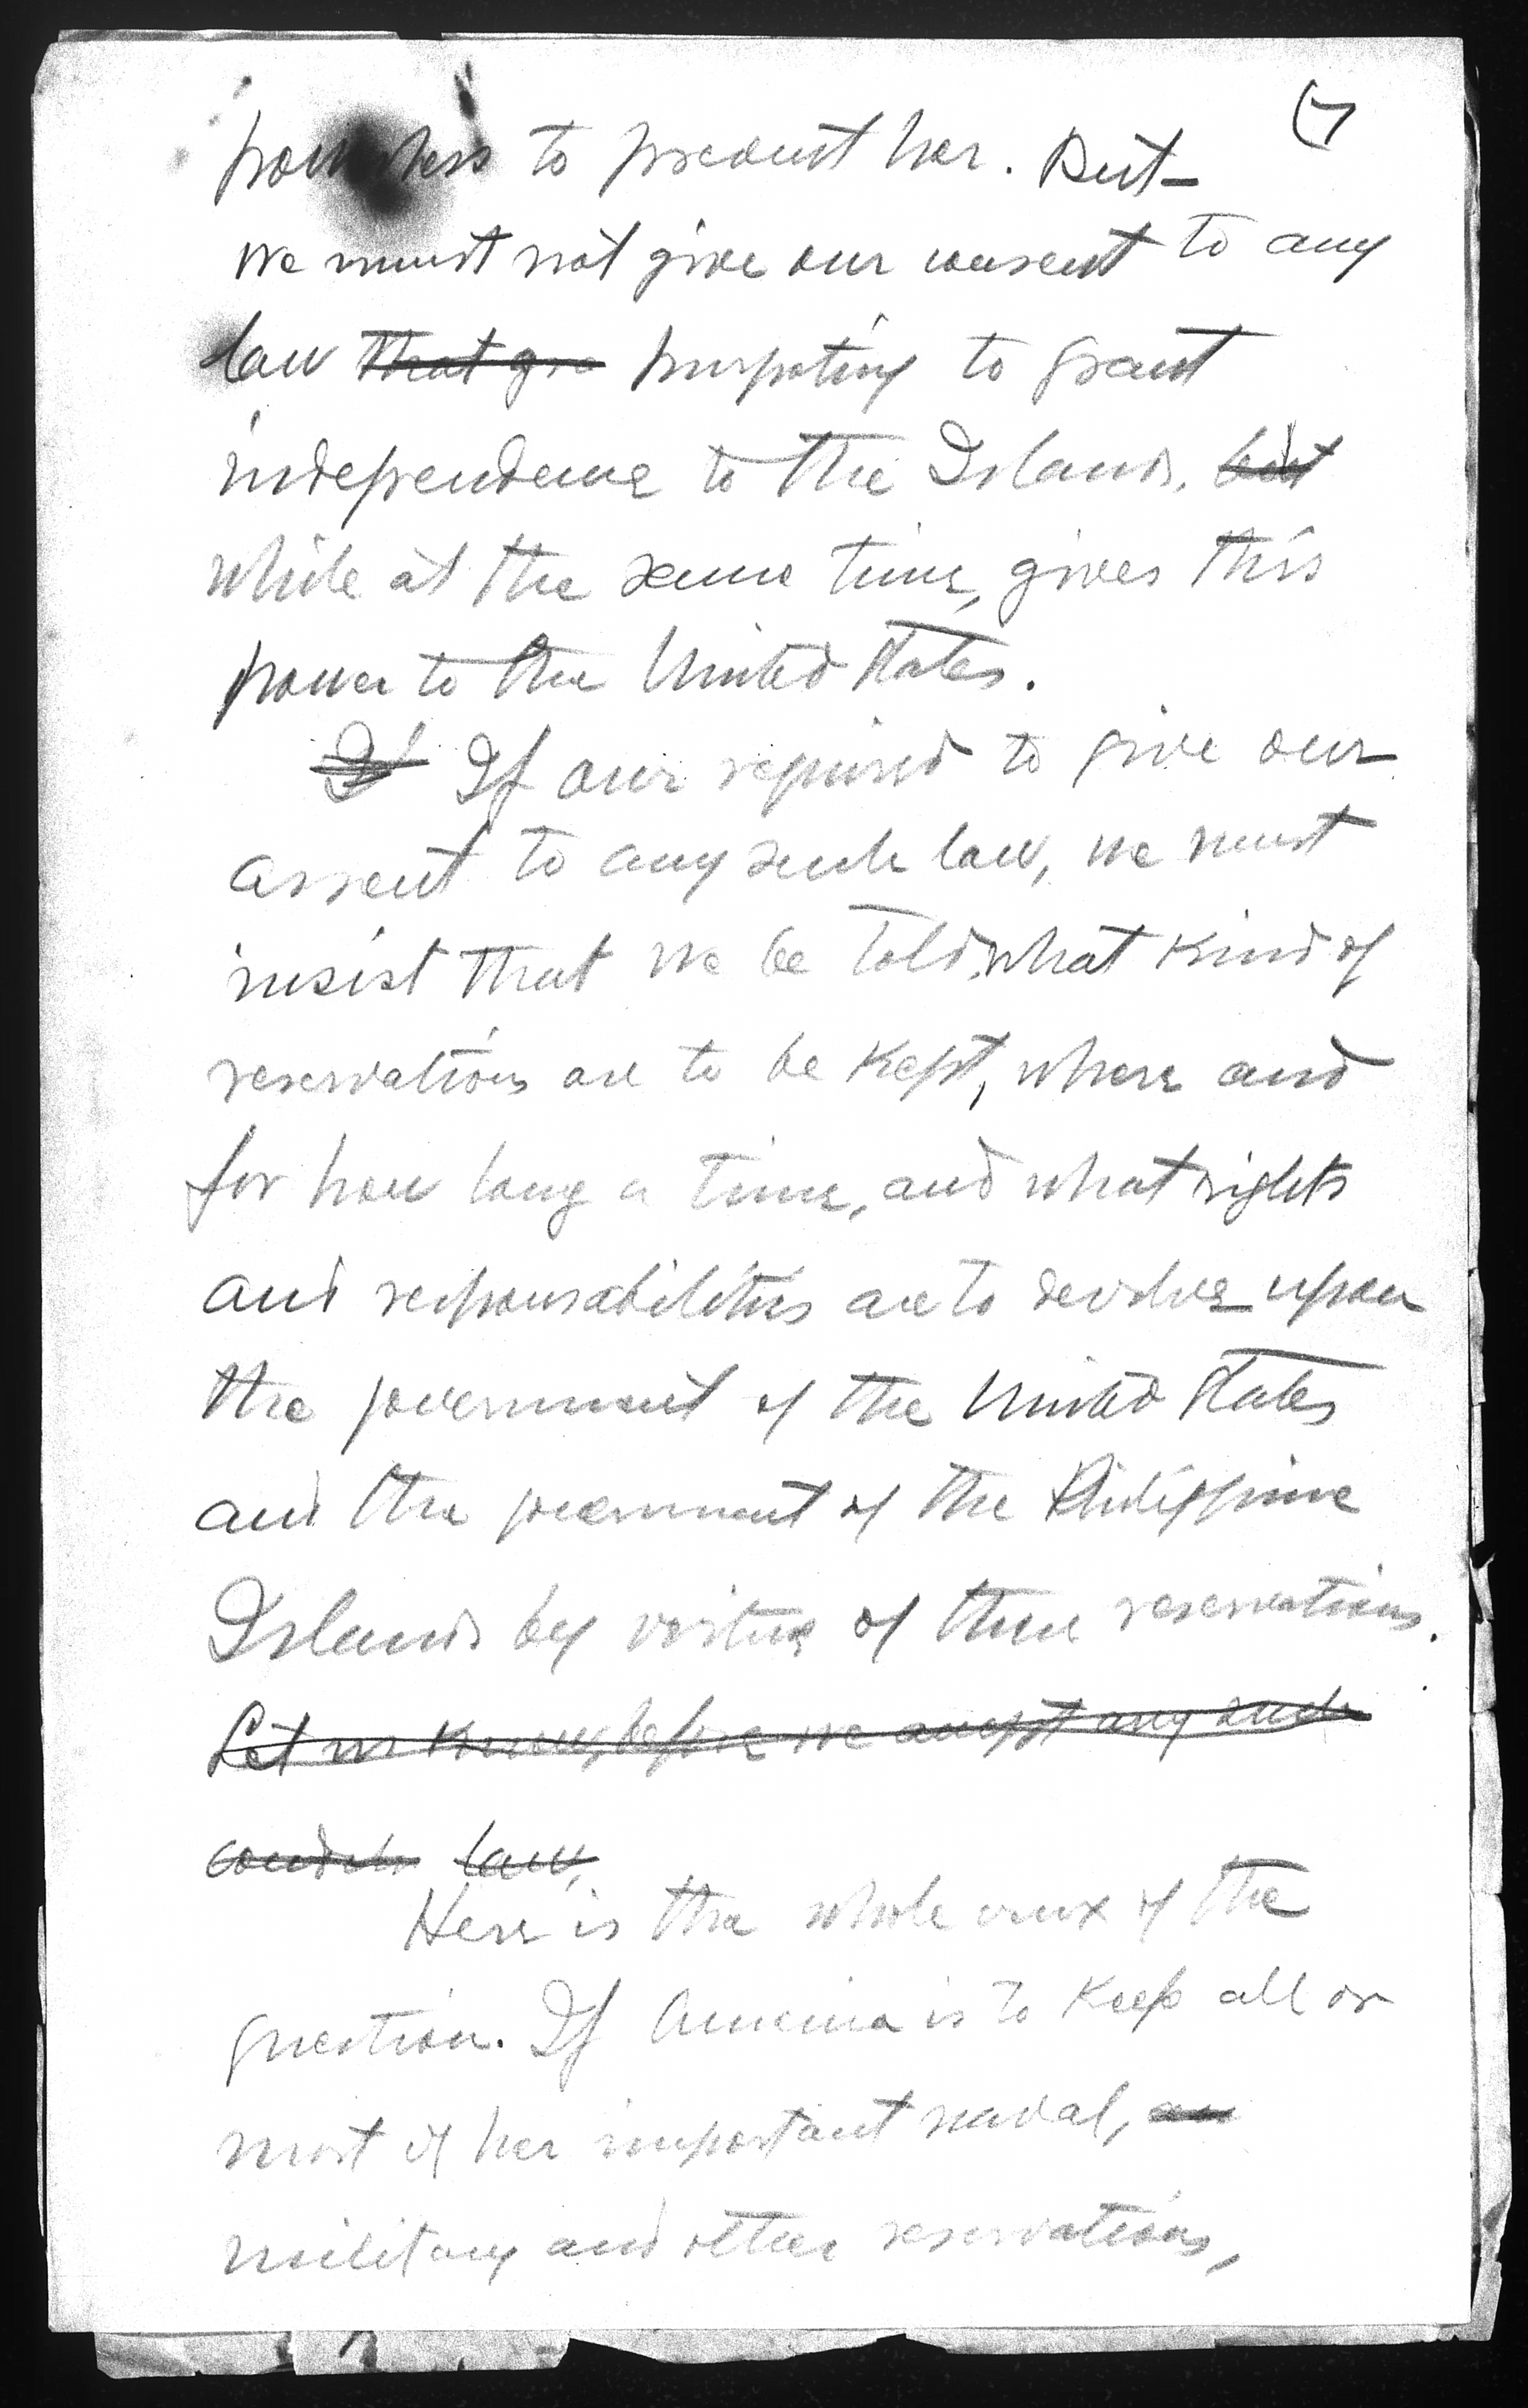 7
powerless to prevent her. But
we must not give our consent to any
law that gra purpoting to grant
independence to the Islands, but
while at the same time, gives this
power to the United States.
If If our required to give our
assent to any such law, we must
insist that we be told, what kind of
reservations are to be kept, where and
for how long a time, and what rights
and responsabilities are to devolve upon
the government of the United States
and the government of the Philippine
Islands by virtue of these reservations.
Let us know, before we accept any such
law,
Here is the whole crux of the
question. If America is to keep all or
most of her important naval, an
military and other reservations,